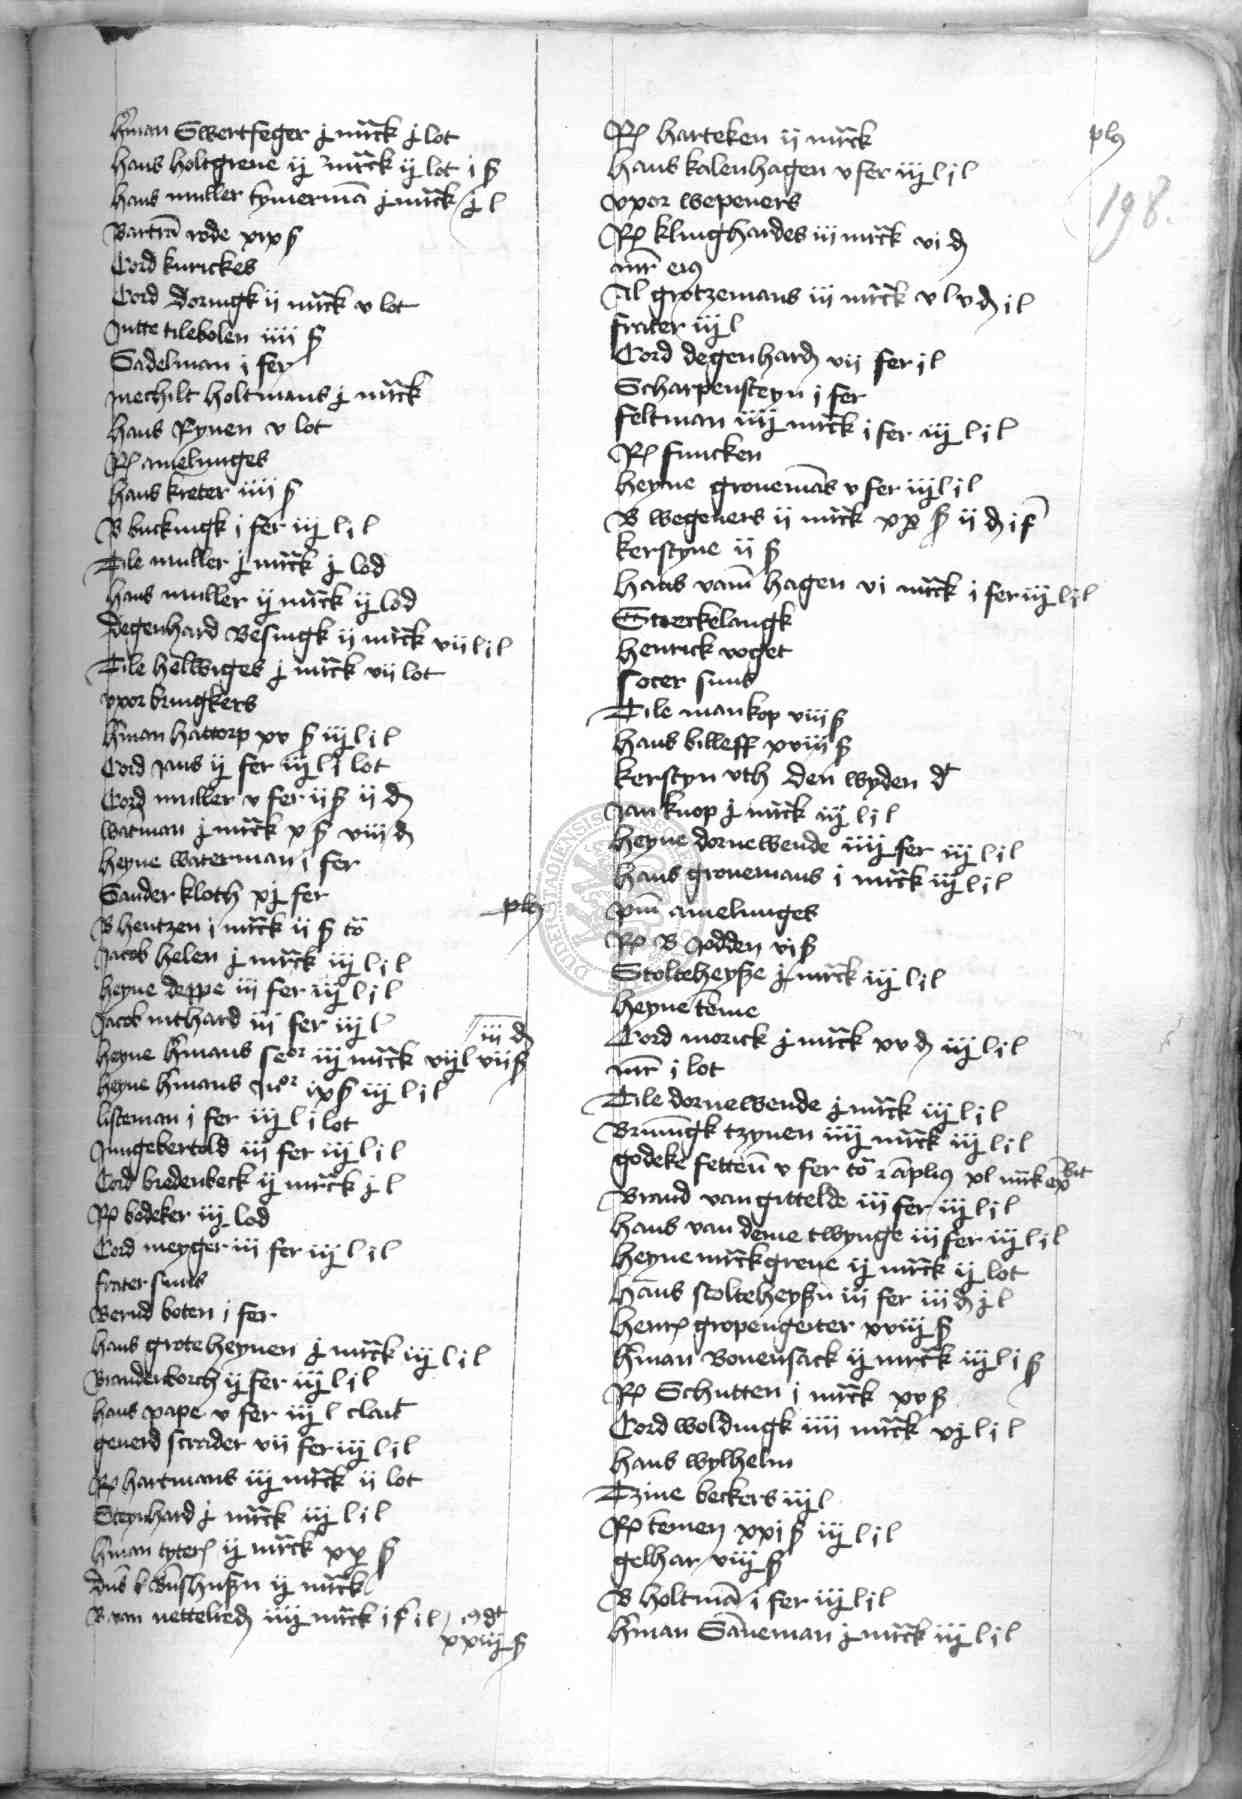 plꝫ
198.
Hman Swertfeger j mrck j lot
Hans Holtgreve ij mrck ij lot i ß
Hans muller tymermā j mrck j l
Bartrā rode xix ß
Cord kurickes
Cord doringk ij mrck v lot
Jutte tilebolen iiij ß
Sadelman i fer
mechilt Holtmans j mrck
Hans Rynen v lot
Rꝭ amelunges
Hans kreter iiij ß
B buckingk i fer iij l i l
Tile muller j mrck j lod
Hans muller ij mrck ij lod
degenhard Besingk ij mrck vij l i l
Tile helwiges j mrck vij lot
vxor bringkers
Hman hattorp xv ß iij l i l
Cord Jans ij fer iij l i lot
Cord muller v fer ij ß ij ₰
watman j mrck x ß viij ₰
heyne waterman i fer
Sander kloth xj fer
B hentzen i mrck ij ß to
Jacob helen j mrck iij l i l
heyne deppe iij fer iij l i l
Jacob nithard iij fer iij l
iij ₰
heyne Hmans seor iij mrck vij l viij ß
heyne Hmans Juor ix ß iij l i l
listeman i fer iij l i lot
Jungebertold iij fer iij l i l
Cord bredenbeck ij mrck j l
Rꝭ bodeker iij lod
Cord meyger iij fer iij l i l
frater suus
Bernd boten i fer
Hans groteheynen j mrck iij l i l
Brandenborch ij fer iij l i l
Hans pape v fer iij l
geverd scrader vij fer iij l i l
Rꝭ Hartmans iij mrck ij lot
Steynhard j mrck iij l i l
Hman tyterꝭ ij mrck xx ß
ij mrck
B van nettelredꝭ iiij mrck i f i l
xxiij ß
plꝫ
Rꝭ Harteken ij mrck
Hans kalenhagen v fer iij l i l
vxor wepeners
Rꝭ klinghardes iij mrck vi ₰
mr eiꝰ
Al grotzemans iij mrck v l v ₰ i l
frater iij l
Cord degenhardꝭ vij fer i l
Scharpensteyn i fer
Feltman iiij mrck i fer iij l i l
Rꝭ funcken
Heyne grovemās v fer iij l i l
B wegeners ij mrck xx ß ij ₰ i f
kerstyne ij ß
Hans vam hagen vi mrck i fer iij l i l
Sterckelangk
Henrick voget
socer suus
Tile mankop viij ß
Hans billeff xviij ß
kerstyn vth den wyden dt
Jan knop j mrck iij l i l
Heyne dornewende iiij fer iij l i l
Hans grovemans i mrck iij l i l
amelunges
Rꝭ B Jodden vi ß
Stolteheyße j mrck iij l i l
heyne teme
Cord morick j mrck xv ₰ iij l i l
mr i lot
Tile dornewende j mrck iij l i l
Brunīgk tzynen iiij mrck iij l i l
godeke fetten v fer to amplius xl mrck
Brand van gittelde iij fer iij l i l
Hans van deme twynge iij fer iij l i l
heyne mrckgreve ij mrck ij lot
Hans stolteheyßn iij fer iij ₰ j l
Henrꝭ gropengeiter xviij ß
Hman Bovensack ij mrck iij l i ß
Rꝭ Schutten i mrck xv ß
Cord woldingk iiij mrck vj l i l
Hans wylhelm
Tzine beckers iij l
Rꝭ temen xxi ß iij l i l
gelhar viij ß
B Holtmā i fer iij l i l
Hman Sāneman j mrck iij l i l